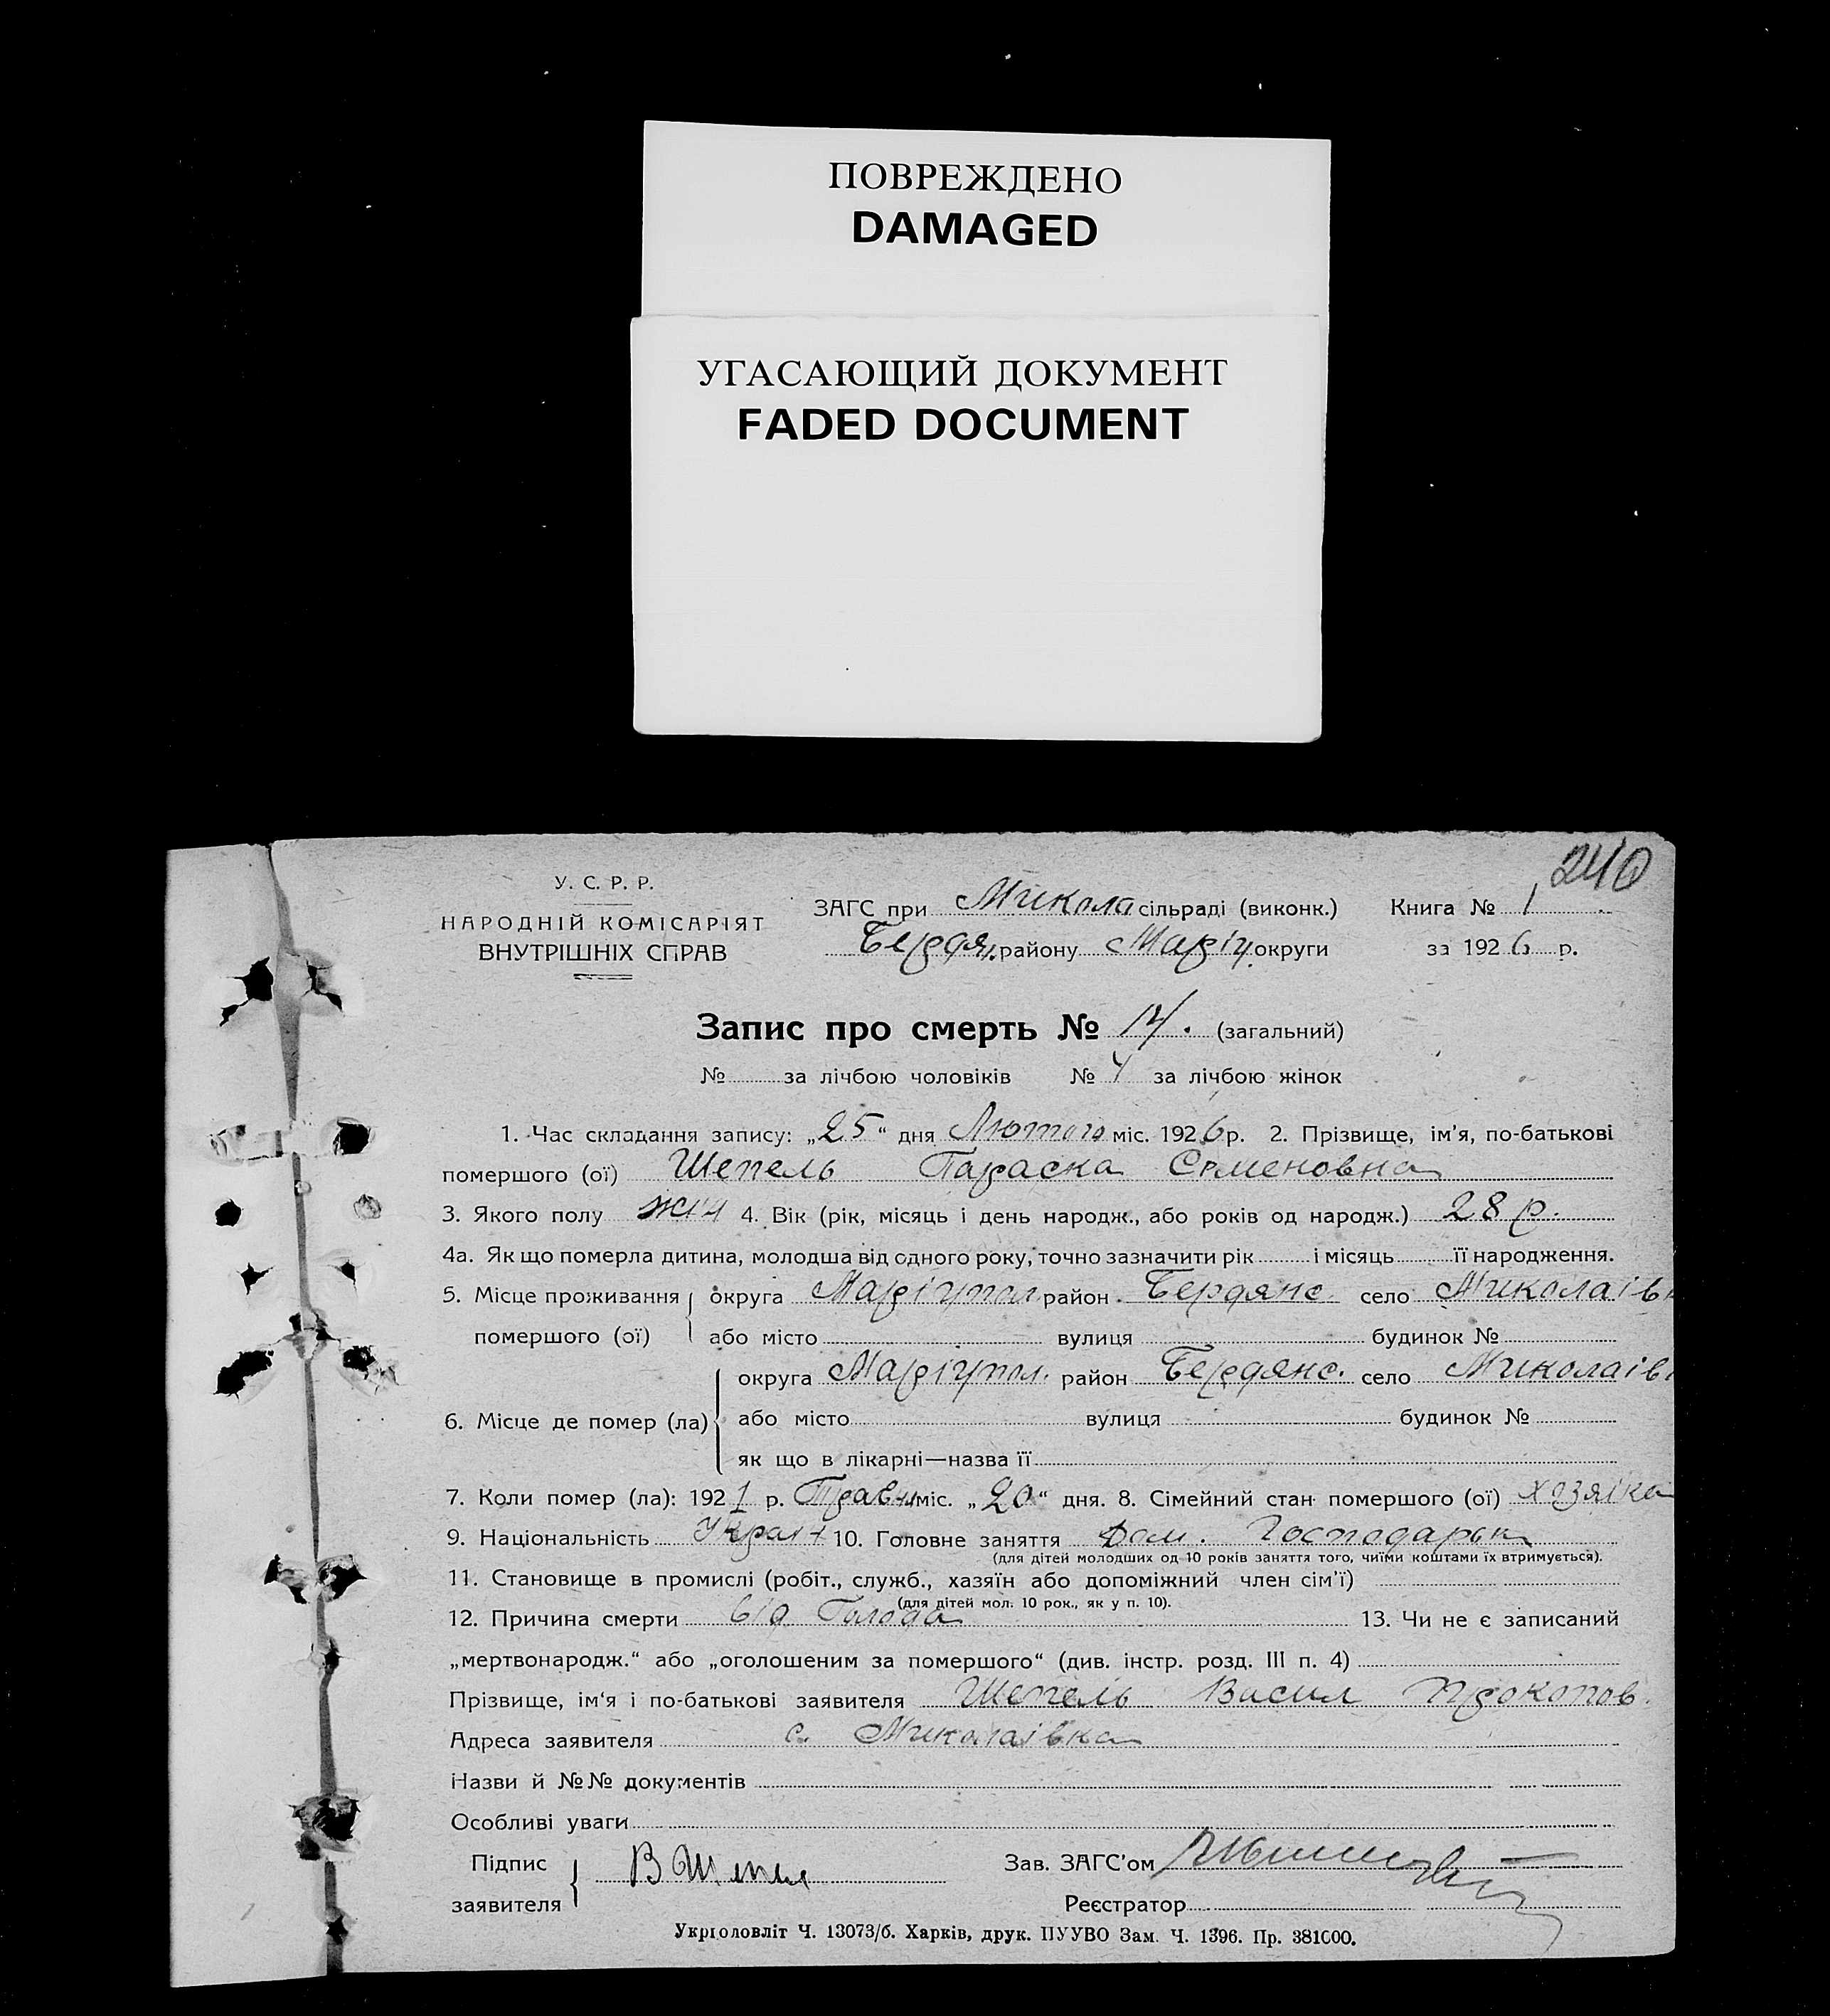 ПОВРЕЖДЕНО
DAMAGED
УГАСАЮЩИЙ ДОКУМЕНТ
FADED DOCUMENT
240
У. С. Р. Р.
НАРОДНІЙ КОМІСАРІЯТ
ВНУТРІШНІХ СПРАВ
ЗАГС при Микола сільраді (виконк.) Книга № 1
Бердян. району Маріуп. округи за 1926 р.
Запис про смерть № 14. (загальний)
№ за лічбою чоловіків № 4 за лічбою жінок
1. Час складання запису: „25“ дня Лютого міс. 1926 р. 2. Прізвище, ім’я, по-батькові
помершого (ої) Шепель Параска Семеновна
3. Якого полу жін 4. Вік (рік, місяць і день народж., або років од народж.) 28 р.
4а. Як що померла дитина, молодша від одного року, точно зазначити рік і місяць її народження.
5. Місце проживання округа Маріупол. район Бердянс. село Миколаівк
помершого (ої) або місто вулиця будинок №
округа Маріупол. район Бердянс. село Миколаів
6. Місце де помер (ла) або місто вулиця будинок №
як що в лікарні—назва її
7. Коли помер (ла): 1921 р. Травн міс. „20“ дня. 8. Сімейний стан помершого (ої) хозяіка
9. Національність Украін 10. Головне заняття Дом. Господарка
(для дітей молодших од 10 років заняття того, чиїми коштами їх втримується).
11. Становище в промислі (робіт., служб., хазяїн або допоміжний член сім’ї)
(для дітей мол. 10 рок., як у п. 10).
12. Причина смерти від Голода 13. Чи не є записаний
„мертвонародж.“ або „оголошеним за помершого“ (див. інстр. розд. III п. 4)
Прізвище, ім‘я і по-батькові заявителя Шепель Васил Прокопов.
Адреса заявителя с. Миколаівка
Назви й №№ документів
Особливі уваги
Підпис В Шепель Зав. ЗАГС’ом
заявителя Реєстратор
Укрголовліт Ч. 13073/б. Харків, друк. ПУУВО Зам. Ч. 1396. Пр. 381000.